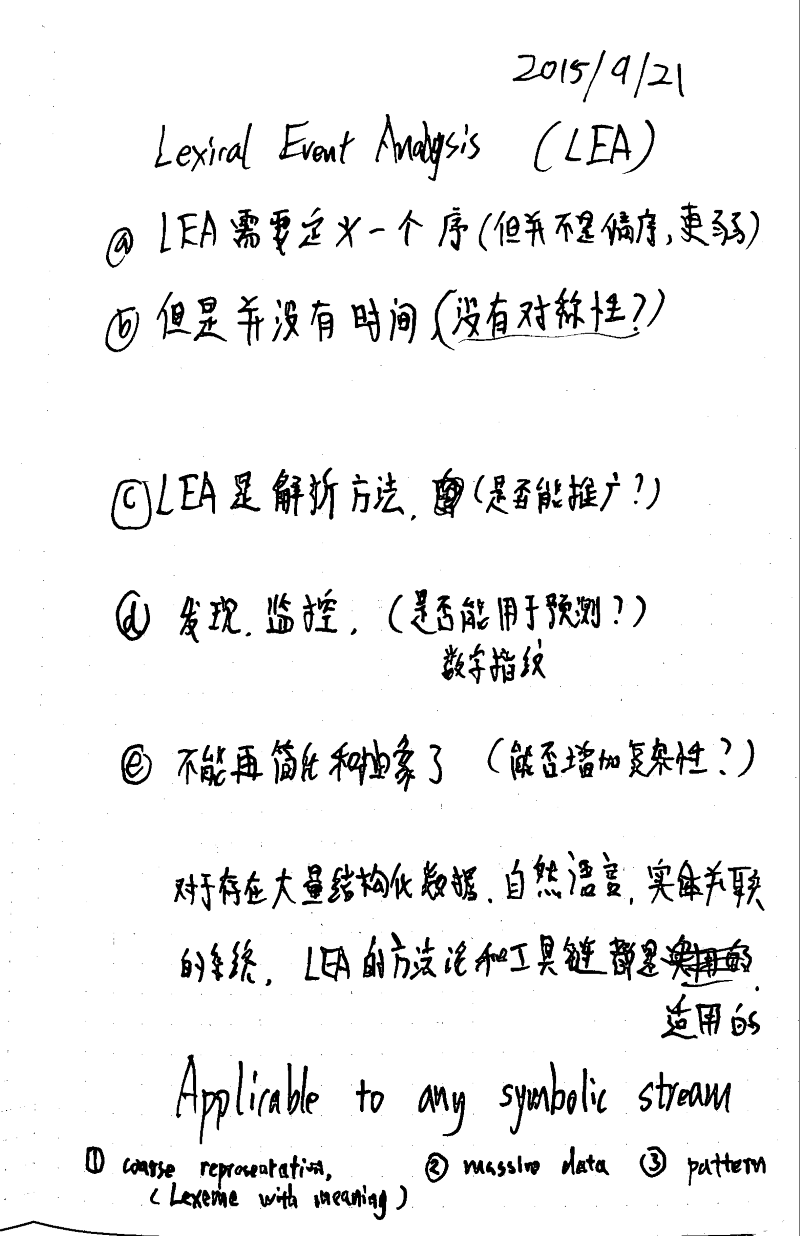 2015/9/21
Lexical Event Analysis (LEA)
ⓐ LEA需要定义一个序(但并不是偏序,更弱)
ⓑ 但是并没有时间(没有对称性?)
ⓒ LEA是解析方法.(是否能推广?)
ⓓ 发现.监控.(是否能用于预测?)
数字指纹
ⓔ 不能再简化和抽象了 (能否增加复杂性?)
对于存在大量结构化数据.自然语言,实体关联
的系统, LEA的方法论和工具链都是
适用的
Applicable to any symbolic stream
① coarse representation, ② massive data ③ pattern
(Lexeme with meaning)